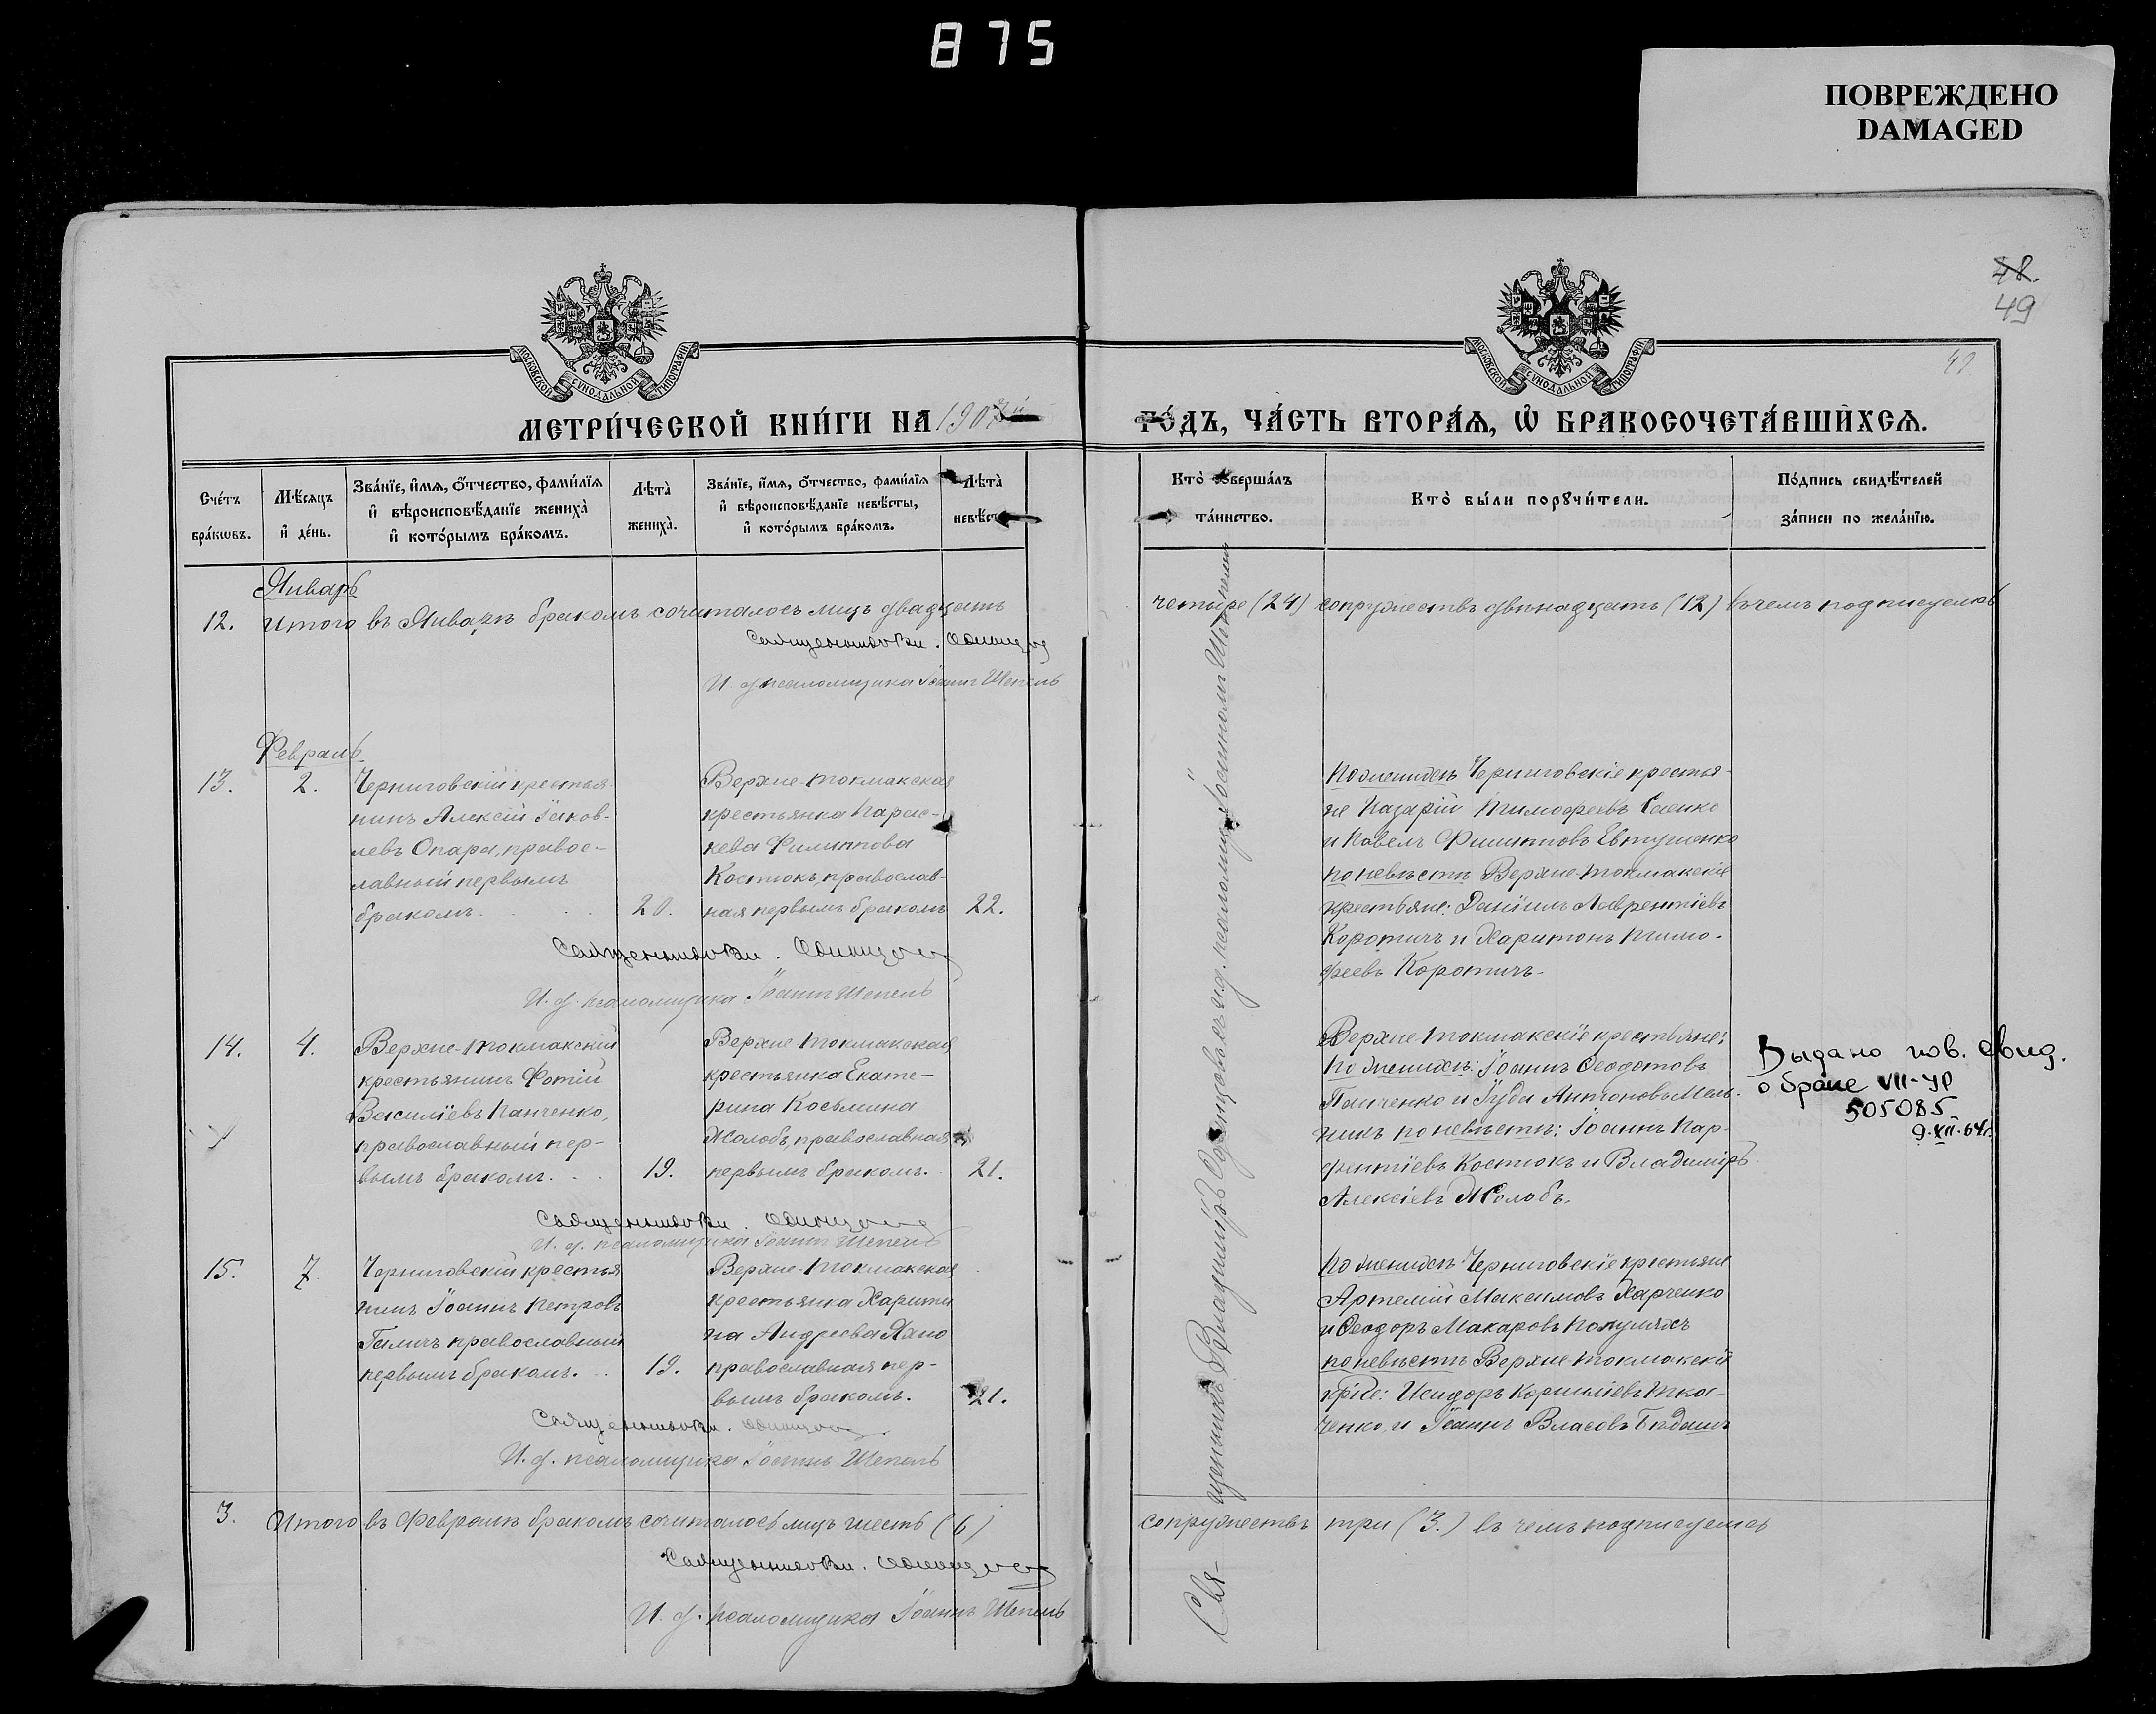 875
ПОВРЕЖДЕНО
DAMAGED
48.
49
МОСКОВСКОЙ СѴНОДАЛЬНОЙ ТИПОГРАФІИ
МОСКОВСКОЙ СѴНОДАЛЬНОЙ ТИПОГРАФІИ
МЕТРИ́ЧЕСКОЙ КНИ́ГИ НА 1907й ГО́ДЪ, ЧА́СТЬ ВТОРА́Я, Ѡ҆ БРАКОСОЧЕТА́ВШИХСЯ.
Сче́тъ бра́кѡвъ.
Мѣ́сяцъ и҆ де́нь.
Зва́нїе, и҆́мя, ѻ҆́тчество, фами́лїя и҆ вѣроисповѣ́данїе жениха̀ и҆ кото́рымъ бра́комъ.
Лѣта̀ жениха̀.
Зва́нїе, и҆́мя, ѻ҆́тчество, фами́лїя и҆ вѣроисповѣ́данїе невѣ́сты, и҆ кото́рымъ бра́комъ.
Лѣта̀ невѣ́сты
Кто̀ соверша́лъ та́инство.
Кто̀ бы́ли порꙋчи́тели.
По́дпись свидѣ́телей за́писи по жела́нїю.
Январь
12. Итого въ Январѣ бракомъ сочиталось лицъ двадцать четыре (24) супружествъ двѣнадцать (12) въ чемъ подписуемся
Священникъ Вл. Одинцовъ
И. д. псаломщика Іоаннъ Шепель
Февраль
13. 2. Черниговскій крестья-
нинъ Алексій Іаков-
левъ Опара, правос-
лавный первымъ
бракомъ. 20.
Верхне-Токмакская
крестьянка Парас-
кева Филиппова
Костюкъ, православ-
ная первымъ бракомъ 22.
По женихѣ Черниговскіе крестья-
не Назарій Тимофеевъ Саенко
и Павелъ Филипповъ Евтушенко
по невѣстѣ Верхне-Токмакскіе
крестьяне: Даніилъ Лаврентіевъ
Коротичъ и Харитонъ Тимо-
феевъ Коротичъ.
Священникъ Вл. Одинцовъ
И. д. псаломщика Іоаннъ Шепель
14. 4. Верхне-Токмакскій
крестьянинъ Фотій
Василіевъ Панченко,
православный пер-
вымъ бракомъ. 19.
Верхне Токмакская
крестьянка Екате-
рина Косьмина
Жолобъ, православная
первымъ бракомъ. 21.
Верхне Токмакскіе крестьяне:
По женихѣ: Іоаннъ Ѳеодотовъ
Панченко и Іуда Антоновъ Мель-
никъ по невѣстѣ: Іоаннъ Пар-
фентіевъ Костюкъ и Владиміръ
Алексіевъ Жолобъ.
Выдано пов. свид.
о браке VII-УР
505085
9.XII.64г.
Священникъ Вл. Одинцовъ
И. д. псаломщика Іоаннъ Шепель
15. 7. Черниговскій крестья
нинъ Іоаннъ Петровъ
Галичъ православный
первымъ бракомъ. 19.
Верхне-Токмакская
крестьянка Харити
на Андреева Хано
православная пер-
вымъ бракомъ. 21.
По женихѣ Черниговскіе крестьяне
Артемій Максимовъ Харченко
и Ѳеодоръ Макаровъ
по невѣстѣ Верхне-Токмакскіе
кр-не: Исидоръ Корниліевъ Тка-
ченко и Іоаннъ Власовъ
Священникъ Вл. Одинцовъ
И. д. псаломщика Іоаннъ Шепель
3. Итого въ Февралѣ бракомъ сочиталось лицъ шесть (6) супружествъ три (3.) въ чемъ подписуемся
Священникъ Вл. Одинцовъ
И. д. псаломщика Іоаннъ Шепель
Священникъ Владиміръ Одинцовъ съ и.д. псаломщ. Іоанномъ Шепелемъ